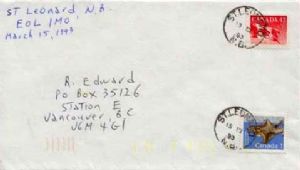 ST Leonard N.B.
EOL 1MO,
March 15, 1993
R. Edward
PO Box 35126
Station E
Vancouver, B.C
V6M 4G1
CANADA
ST. LEO
93
N.B.
Canada
ST. LEO
93
N.B.